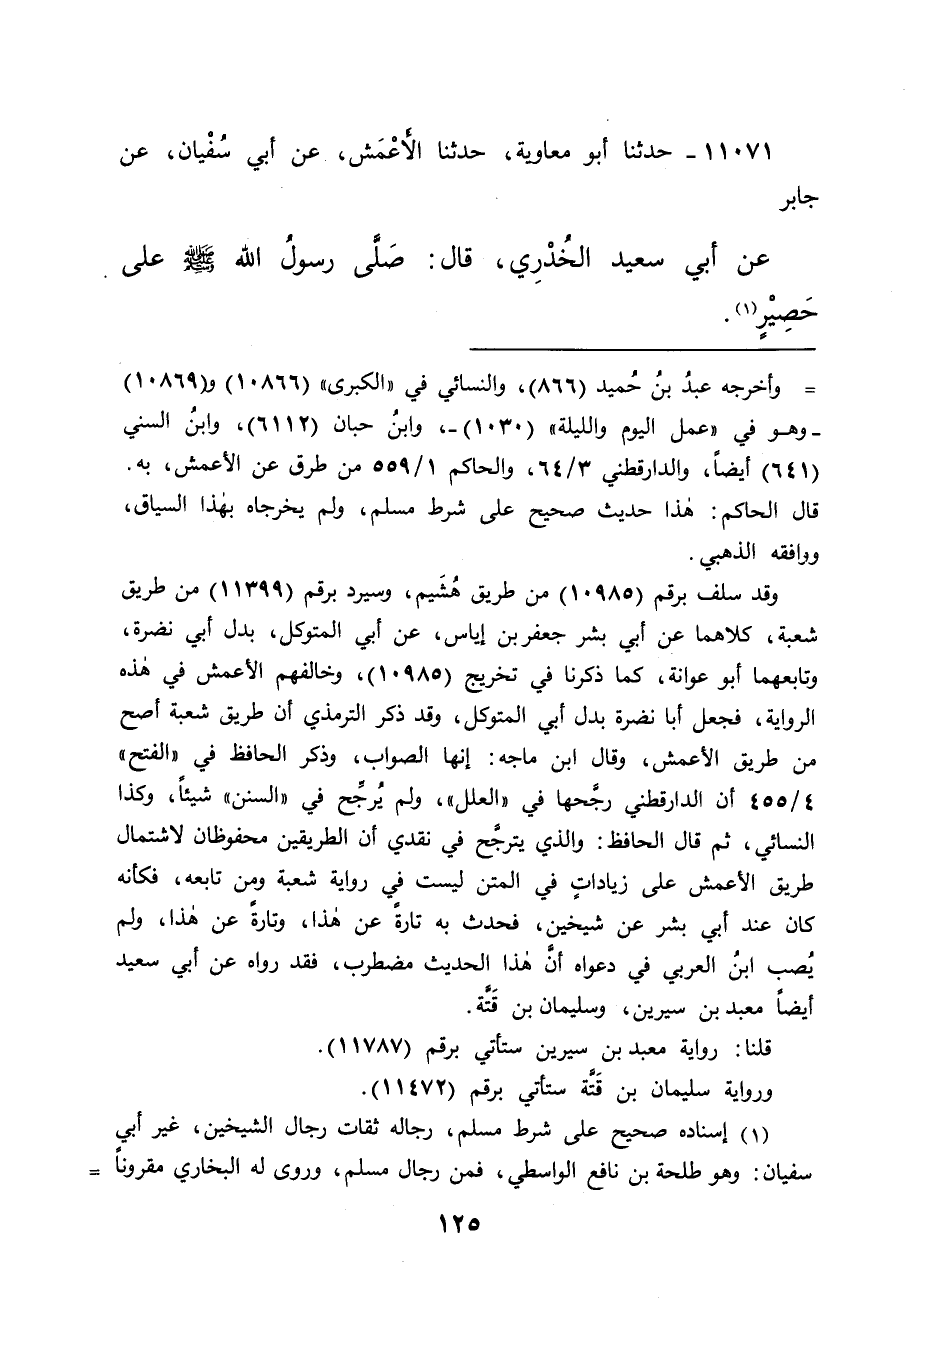 ١١٠٧١ ـ حدثنا أبو معاوية، حدثنا الأَعْمَش، عن أبي سُفْيان، عن
جابر
عن أبي سعيد الخُدْرِي، قال: صَلَّى رسولُ الله ﷺ على
حَصِيْرٍ(١).
= وأخرجه عبدُ بنُ حُميد (٨٦٦)، والنسائي في «الكبرى» (١٠٨٦٦) و(١٠٨٦٩)
ـ وهو في «عمل اليوم والليلة» (١٠٣٠) ـ، وابنُ حبان (٦١١٢)، وابنُ السني
(٦٤١) أيضاً، والدارقطني ٦٤/٣، والحاكم ٥٥٩/١ من طرق عن الأعمش، به.
قال الحاكم: هٰذا حديث صحيح على شرط مسلم، ولم يخرجاه بهٰذا السياق،
ووافقه الذهبي.
وقد سلف برقم (١٠٩٨٥) من طريق هُشَيم، وسيرد برقم (١١٣٩٩) من طريق
شعبة، كلاهما عن أبي بشر جعفر بن إياس، عن أبي المتوكل، بدل أبي نضرة،
وتابعهما أبو عوانة، كما ذكرنا في تخريج (١٠٩٨٥)، وخالفهم الأعمش في هٰذه
الرواية، فجعل أبا نضرة بدل أبي المتوكل، وقد ذكر الترمذي أن طريق شعبة أصح
من طريق الأعمش، وقال ابن ماجه: إنها الصواب، وذكر الحافظ في «الفتح»
٤٥٥/٤ أن الدارقطني رجَّحها في «العلل»، ولم يُرجِّح في «السنن» شيئاً، وكذا
النسائي، ثم قال الحافظ: والذي يترجَّح في نقدي أن الطريقين محفوظان لاشتمال
طريق الأعمش على زياداتٍ في المتن ليست في رواية شعبة ومن تابعه، فكأنه
كان عند أبي بشر عن شيخين، فحدث به تارةً عن هٰذا، وتارةً عن هٰذا، ولم
يُصب ابنُ العربي في دعواه أنَّ هٰذا الحديث مضطرب، فقد رواه عن أبي سعيد
أيضاً معبد بن سيرين، وسليمان بن قَتَّة.
قلنا: رواية معبد بن سيرين ستأتي برقم (١١٧٨٧).
ورواية سليمان بن قَتَّة ستأتي برقم (١١٤٧٢).
(١) إسناده صحيح على شرط مسلم، رجاله ثقات رجال الشيخين، غير أبي
سفيان: وهو طلحة بن نافع الواسطي، فمن رجال مسلم، وروى له البخاري مقروناً =
١٢٥